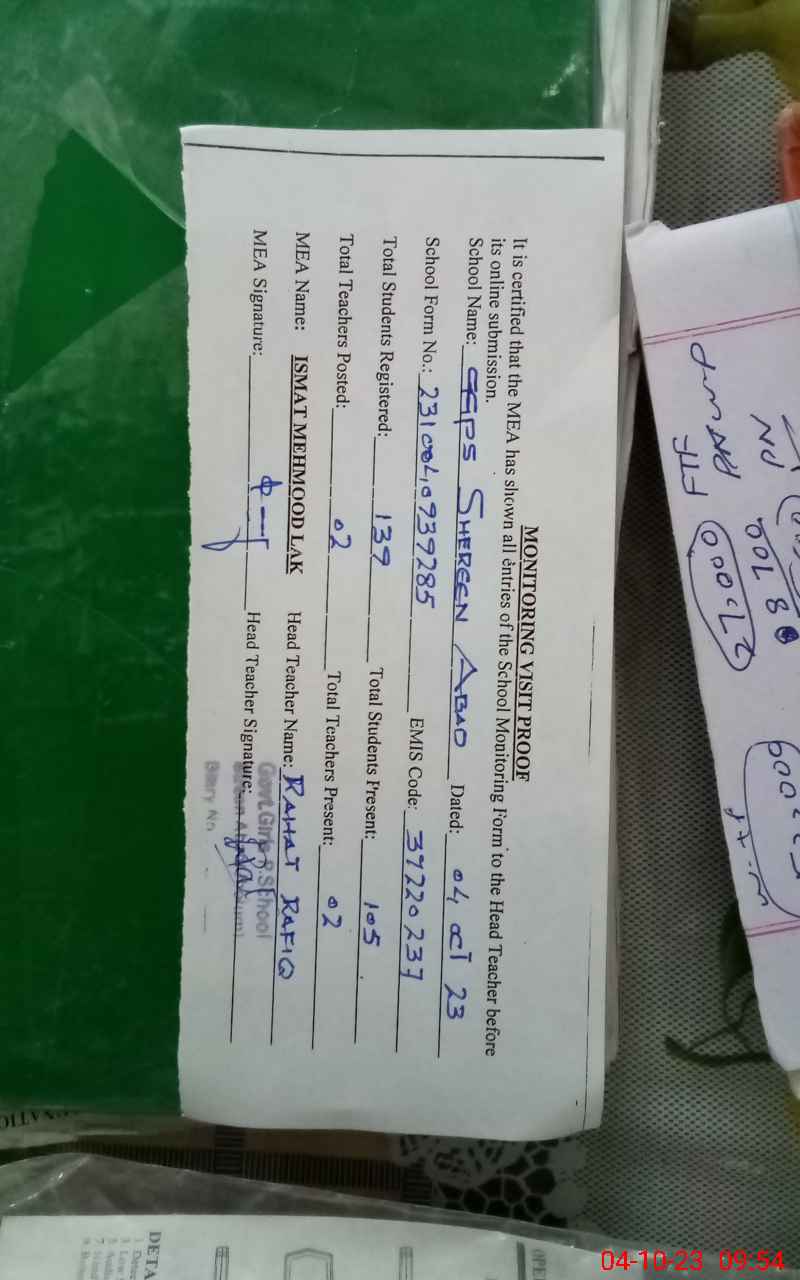 MONITORING VISIT PROOF
It is certified that the MEA has shown all entries of the School Monitoring Form to the Head Teacher before
its online submission.
School Name: GGPS SHEREEN ABAD Dated: 04 OCT 23
School Form No.: 231004,0939285 EMIS Code: 37220237
Total Students Registered: 139 Total Students Present: 105
Total Teachers Posted: 02 Total Teachers Present: 02
MEA Name: ISMAT MEHMOOD LAK Head Teacher Name: RAHAT RAFIQ
MEA Signature: Head Teacher Signature:
Govt. Girls P. School
Diary No
PN
8700
FTF
27000
DETA
04-10-23 09:54